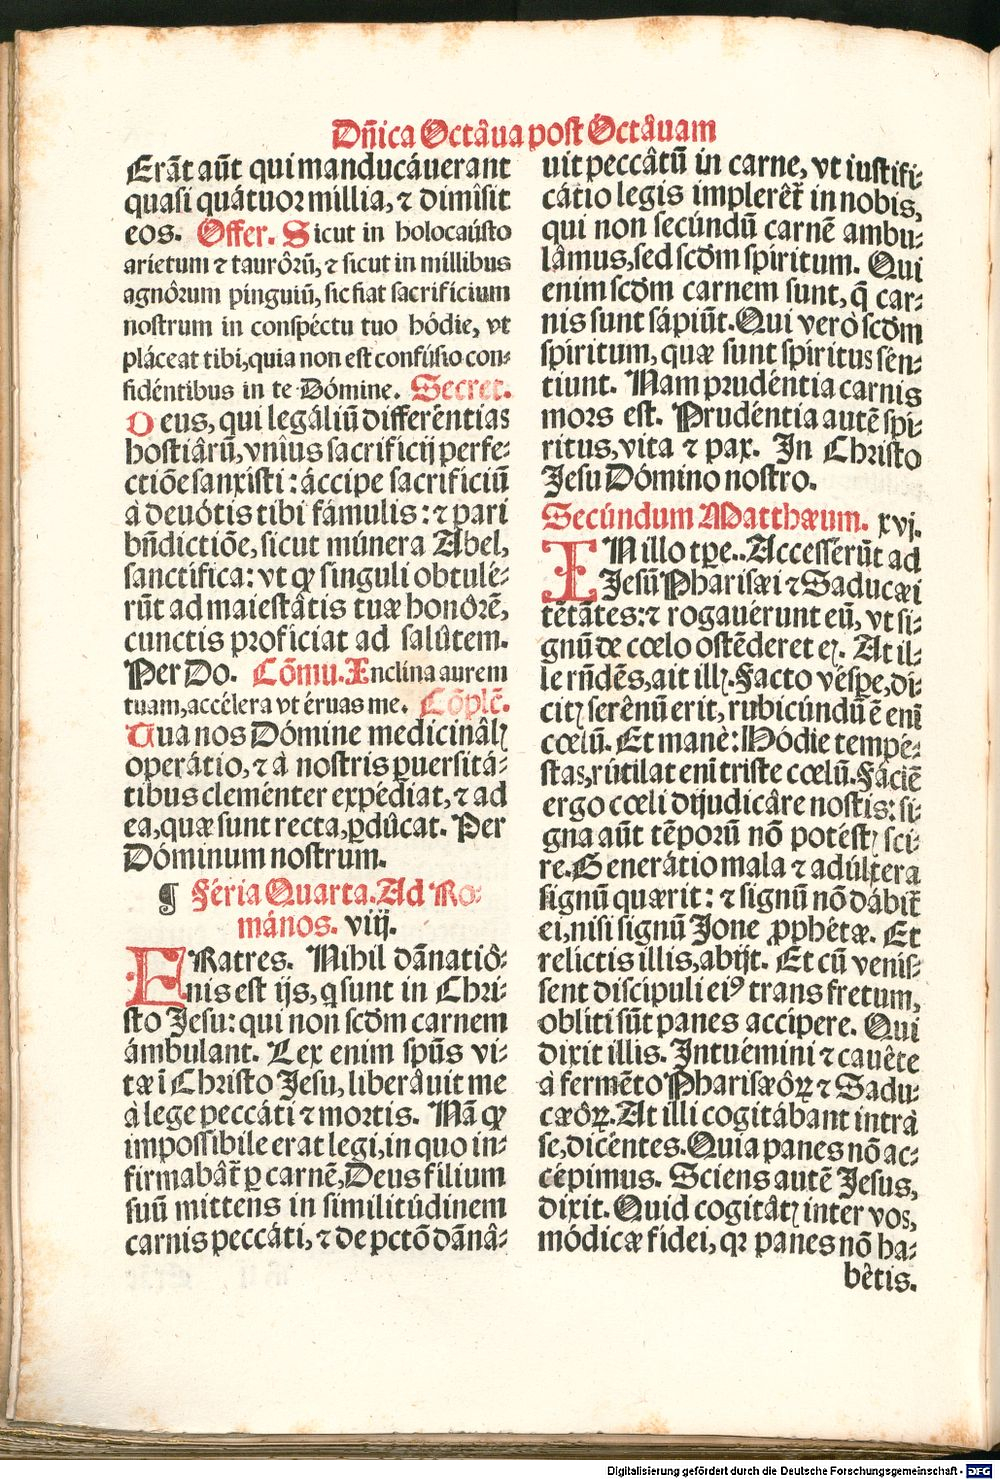 Dn̄ica Octâua post Octâuam
Erāt aūt qui manducáuerant
quasi quátuor millia, ⁊ dimîsit
eos. Offer. Sicut in holocaústo
arietum ⁊ taurôrū, ⁊ sicut in millibus
agnôrum pinguiū, sic fiat sacrificium
nostrum in conspéctu tuo hódie, vt
pláceat tibi, quia non est confúsio con-
fidéntibus in te Dómine. Secret.
Deus, qui legáliū differéntias
hostiârū, vnîus sacrificij perfe-
ctiōe sanxisti: áccipe sacrificiū
à deuótis tibi fámulis: ⁊ pari
bn̄dictiōe, sicut múnera Abel,
sanctifica: vt qđ singuli obtulê-
rūt ad maiestâtis tuæ honôrē,
cunctis proficiat ad salûtem.
Per Do. Cōmu. Inclina aurem
tuam, accélera vt éruas me. Cōplē.
Tua nos Dómine medicinâlꝭ
operátio, ⁊ à nostris ꝑuersitá-
tibus cleménter expédiat, ⁊ ad
ea, quæ sunt recta, ꝑdûcat. Per
Dóminum nostrum.
¶ Féria Quarta. Ad Ro-
mános. viij.
FRatres. Nihil dānatiô-
nis est ijs, q̇ sunt in Chri-
sto Jesu: qui non scđm carnem
ámbulant. Lex enim spūs vi-
tæ ī Christo Jesu, liberâuit me
à lege peccáti ⁊ mortis. Nā qđ
impossibile erat legi, in quo in-
firmabât᷑ ꝑ carnē, Deus filium
suū mittens in similitúdinem
carnis peccáti, ⁊ de pctō dānâ-
uit peccâtū in carne, vt iustifi-
cátio legis implerêt᷑ in nobis,
qui non secúndū carnē ambu-
lâmus, sed scđm spíritum. Qui
enim scđm carnem sunt, q̄ car-
nis sunt sápiūt. Qui verò scđm
spíritum, quæ sunt spíritus sén-
tiunt. Nam prudéntia carnis
mors est. Prudéntia autē spi-
ritus, vita ⁊ pax. In Christo
Jesu Dómino nostro.
Secúndum Matthæum. xvj.
IN illo tꝑe.. Accesserūt ad
Jesū Pharisæi ⁊ Saducæi
tētātes: ⁊ rogauérunt eū, vt si-
gnū de cœlo ostēderet eꝭ. At il-
le rn̄dēs, ait illꝭ. Facto véspe, di-
citꝭ serênū erit, rubicúndū ē enī
cœlū. Et manè: Hódie tempé-
stas, rútilat enī triste cœlū. Fáciē
ergo cœli dijudicâre nostis: si-
gna aūt tēporū nō potéstꝭ sci-
re. Generátio mala ⁊ adúltera
signū quærit: ⁊ signū nō dábit᷑
ei, nisi signū Jone ꝓphétæ. Et
relictis illis, abijt. Et cū venís-
sent discípuli eiꝰ trans fretum,
oblíti sūt panes accípere. Qui
dixit illis. Intuémini ⁊ cauête
à fermēto Pharisæôꝝ ⁊ Sadu-
cæôꝝ. At illi cogitábant intrà
se, dicéntes. Quia panes nō ac-
cépimus. Sciens autē Jesus,
dixit. Quid cogitâtꝭ inter vos,
módicæ fídei, qꝛ panes nō ha-
bêtis.
Digitalisierung gefördert durch die Deutsche Forschungsgemeinschaft - DFG